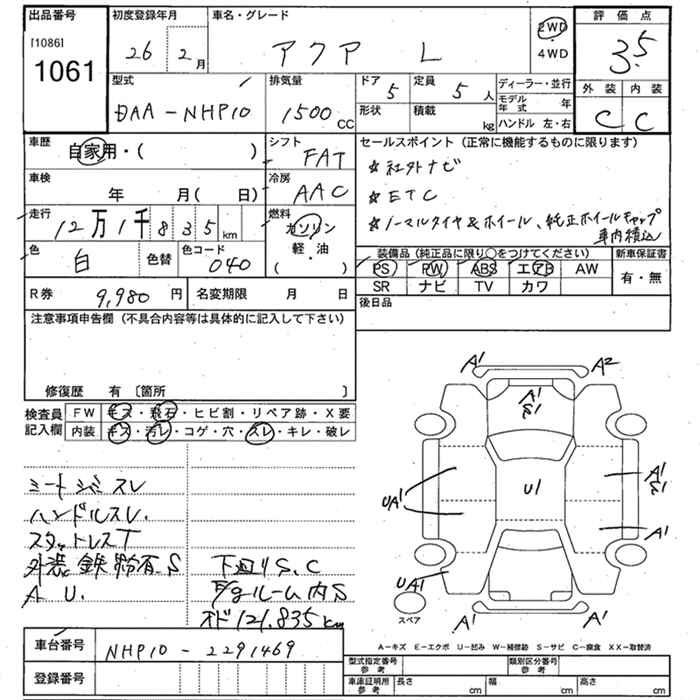 出品番号 初度登録年月 車名・グレード 評価点
[1086]
1061
26 2月 アクア L 2WD 3.5
・4WD
型式 排気量 ドア 定員 ディーラー・並行 外装 内装
DAA-NHP10 1500CC 5 5人 モデル年式 年 C C
形状 積載 kg ハンドル 左・右
車歴 シフト セールスポイント (正常に機能するものに限ります)
自家用・( ) FAT ☆社外ナビ
車検 冷房 ☆ETC
年 月( 日) AAC ☆ノーマルタイヤ&ホイール、純正ホイールキャップ
車内積込
走行 燃料
12万1千835km ガソリン
色 色替 色コード 軽・油
白 040 ( )
装備品 (純正品に限り○をつけてください) 新車保証書
PS PW ABS エアB AW 有・無
SR ナビ TV カワ
R券 9,980円 名変期限 月 日 後日品
注意事項申告欄 (不具合内容等は具体的に記入して下さい)
修復歴 有 〔箇所 〕
検査員 FW キズ・飛石・ヒビ割・リペア跡・X要
記入欄 内装 キズ・汚レ・コゲ・穴・スレ・キレ・破レ
シートシミスレ
ハンドルスレ.
スタットレスT
外装鉄粉有.S 下廻りS.C
A U. E/gルーム内S
オド121.835km
A1 A2
A1
S1
UA1 U1 A1
S1
A1
UA1
スペア A1 A1
A-キズ E-エクボ U-凹み W-補修跡 S-サビ C-腐食 XX-取替済
車台番号 NHP10-2291469
登録番号
型式指定番号 参考 類別区分番号 参考
車庫証明用 参考 長さ cm 幅 cm 高さ cm